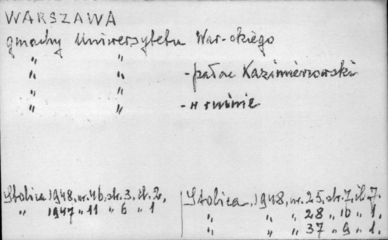 WARSZAWA
gmachy Uniwersytetu War-skiego
" " - pałac Kazimierzowski
" "
" " - w ruinie
Stolica 1948, nr. 46, str. 3, il. 2,
" 1947 " 11 " 6 " 1
Stolica, 1948, nr. 25, str. 7, il. 7.
" " " 28 " 16 " 1,
" " " 37 " 9 " 1,